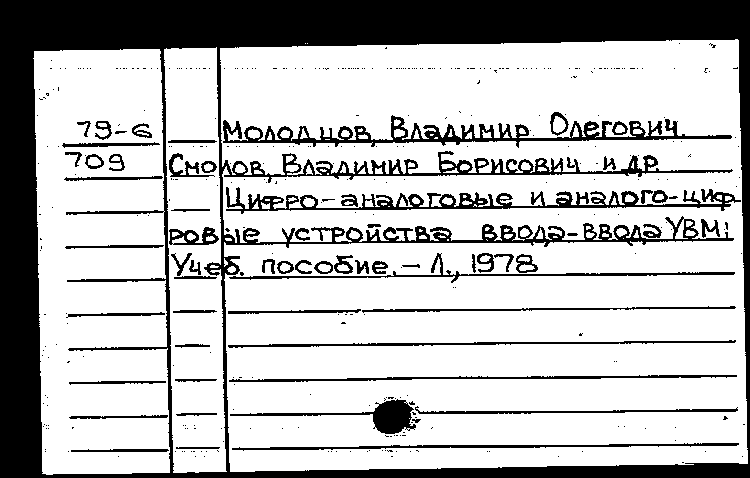 79-6 Молодцов, Владимир Олегович.
709 Смолов, Владимир Борисович и др.
Цифро-аналоговые и аналого-циф-
ровые устройства ввода-ввода УВМ:
Учеб. пособие. – Л., 1978